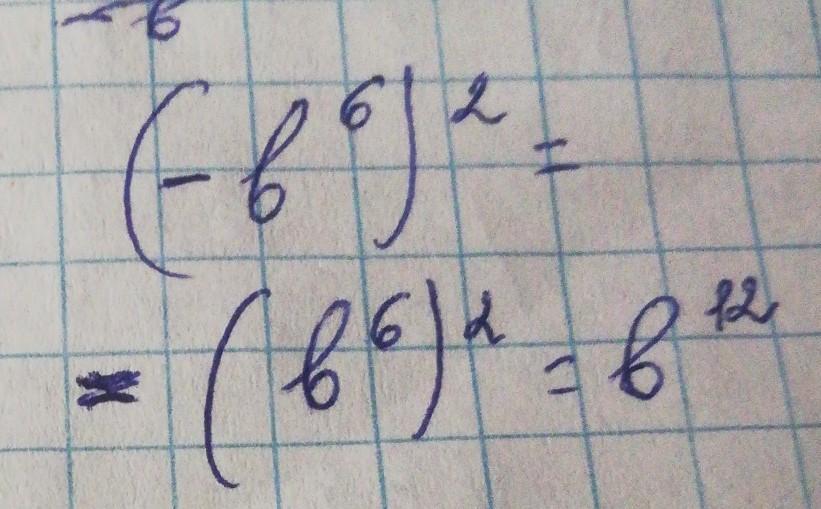 (-b⁶)² =
= (b⁶)² = b¹²